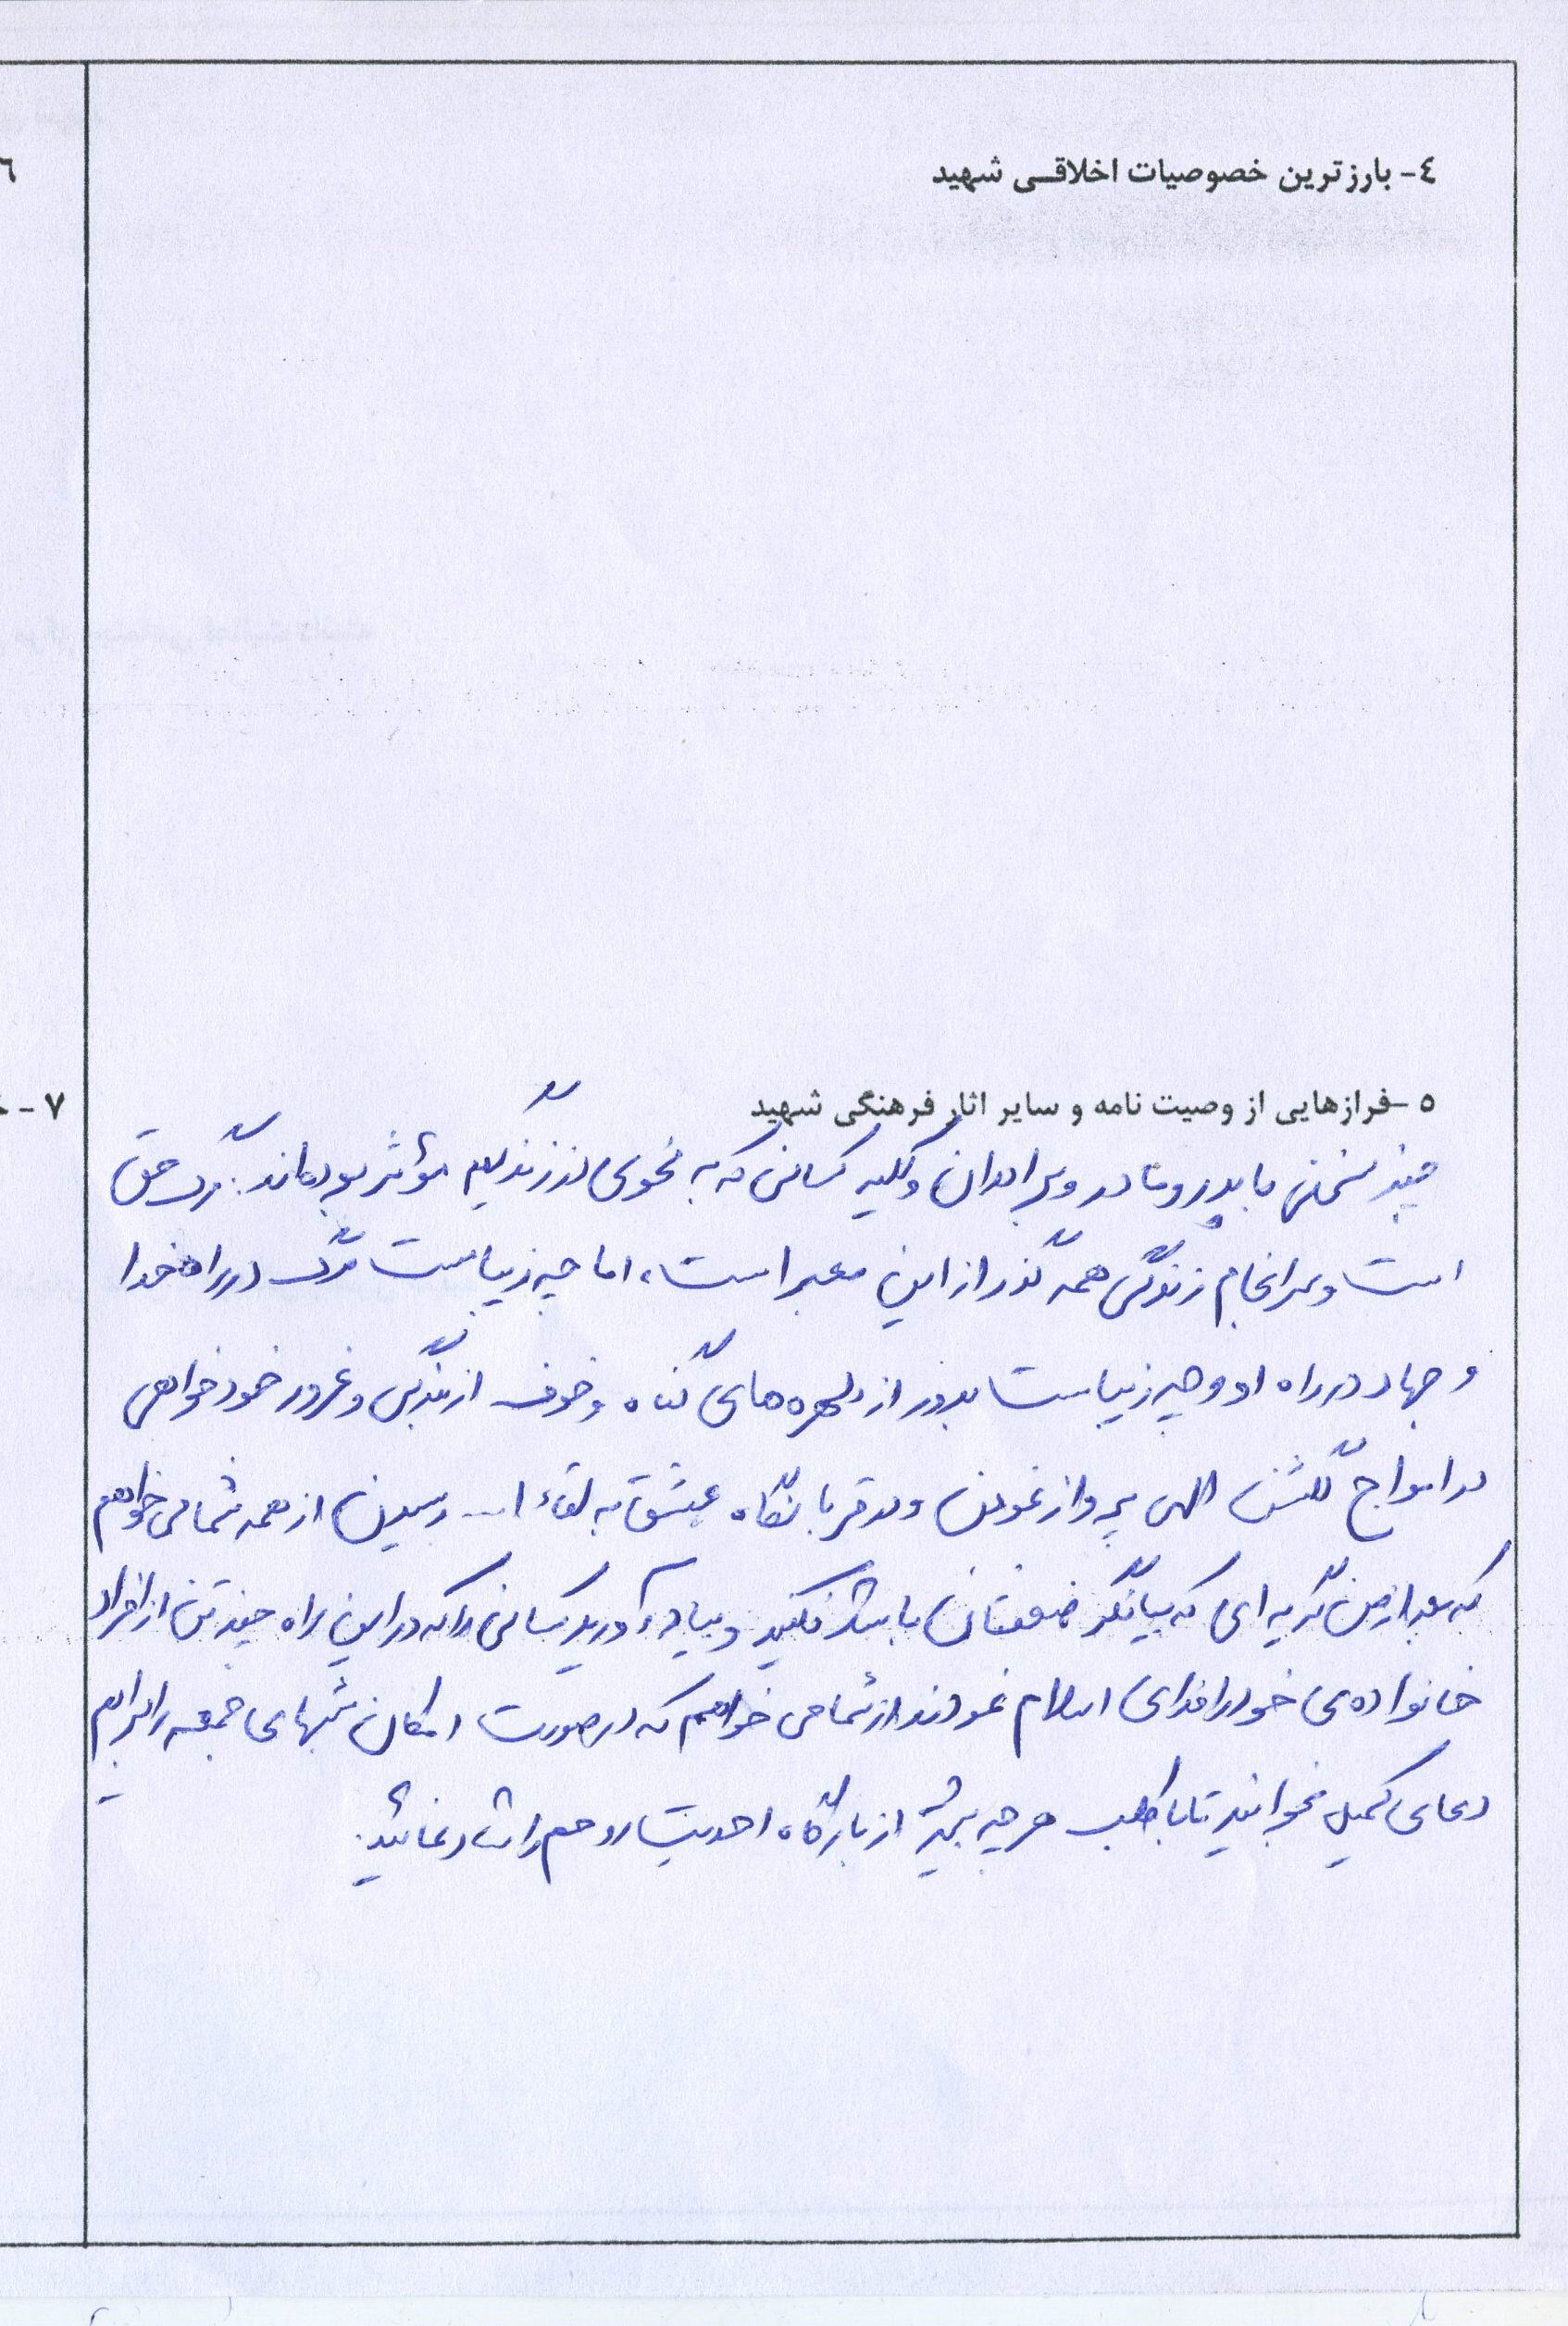 ٤- بارزترین خصوصیات اخلاقی شهید
٦
٥- فرازهایی از وصیت نامه و سایر اثار فرهنگی شهید
٧ -
چند سخنی با پدر و مادر و برادران و کلیه کسانی که به نحوی در زندگیم مؤثر بوده‌اند: مرگ حق
است و سرانجام زندگی همه گذر از این معبر است، اما چه زیباست مرگ در راه خدا
و جهاد در راه او و چه زیباست بدور از دلهره های گناه و خوف از بندگی و غرور خودخواهی
در امواج گلشن الهی پرواز نمودن و در قربانگاه عشق به لقاء ا... رسیدن از همه شما می خواهم
که بعد از من گریه ای که بیانگر ضعفتان باشد نکنید و بیاد آورید کسانی را که در این راه چند تن از افراد
خانواده‌ی خود را فدای اسلام نمودند از شما می خواهم که در صورت امکان شبهای جمعه را برایم
دعای کمیل بخوانید تا با طلب هر چه بیشتر از بارگاه احدیت روحم را شاد نمائید.